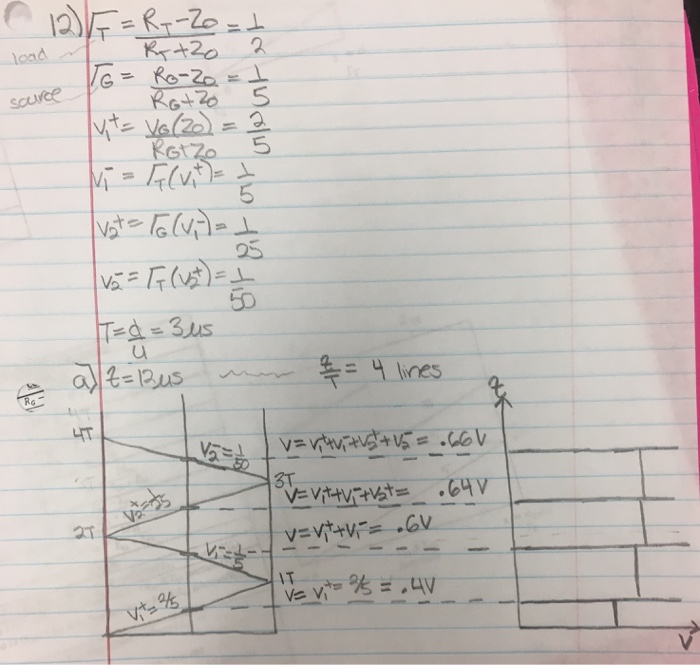 12) Γ_T = (R_T - Z0)/(R_T + Z0) = 1/2
load
Γ_G = (R_G - Z0)/(R_G + Z0) = 1/5
source
V1+ = V_G(Z0)/(R_G + Z0) = 2/5
V1- = Γ_T(V1+) = 1/5
V2+ = Γ_G(V1-) = 1/25
V2- = Γ_T(V2+) = 1/50
T = d/u = 3us
a) t = 12us t/T = 4 lines
R_G =
t
4T V2- = 1/50 V = V1+ + V1- + V2+ + V2- = .66V
3T
V2+ = 1/25 V = V1+ + V1- + V2+ = .64V
2T V = V1+ + V1- = .6V
V1- = 1/5
1T
V1+ = 2/5 V = V1+ = 2/5 = .4V
V